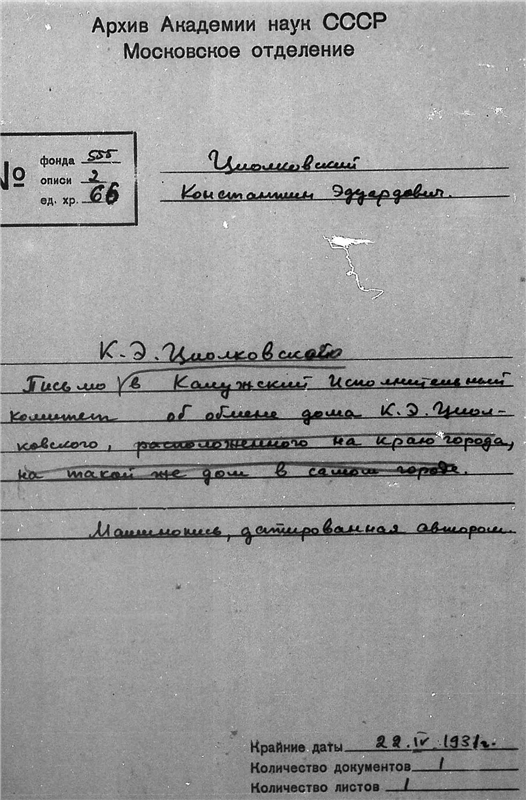 Архив Академии наук СССР
Московское отделение
№
фонда 555
описи 2
ед. хр. 66
Циолковский
Константин Эдуардович.
К. Э. Циолковского
Письмо в Калужский Исполнительный
комитет об обмене дома К. Э. Циол-
ковского, расположенного на краю города,
на такой же дом в самом городе.
Машинопись, датированная автором.
Крайние даты 22.IV.1931г.
Количество документов 1
Количество листов 1